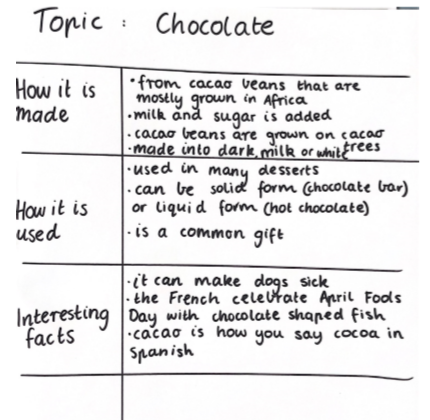 Topic : Chocolate
How it is
made
• from cacao beans that are
mostly grown in Africa
• milk and sugar is added
• cacao beans are grown on cacao
trees
• made into dark, milk or white
How it is
used
• used in many desserts
• can be solid form (chocolate bar)
or liquid form (hot chocolate)
• is a common gift
Interesting
facts
• it can make dogs sick
• the French celebrate April Fools
Day with chocolate shaped fish
• cacao is how you say cocoa in
Spanish